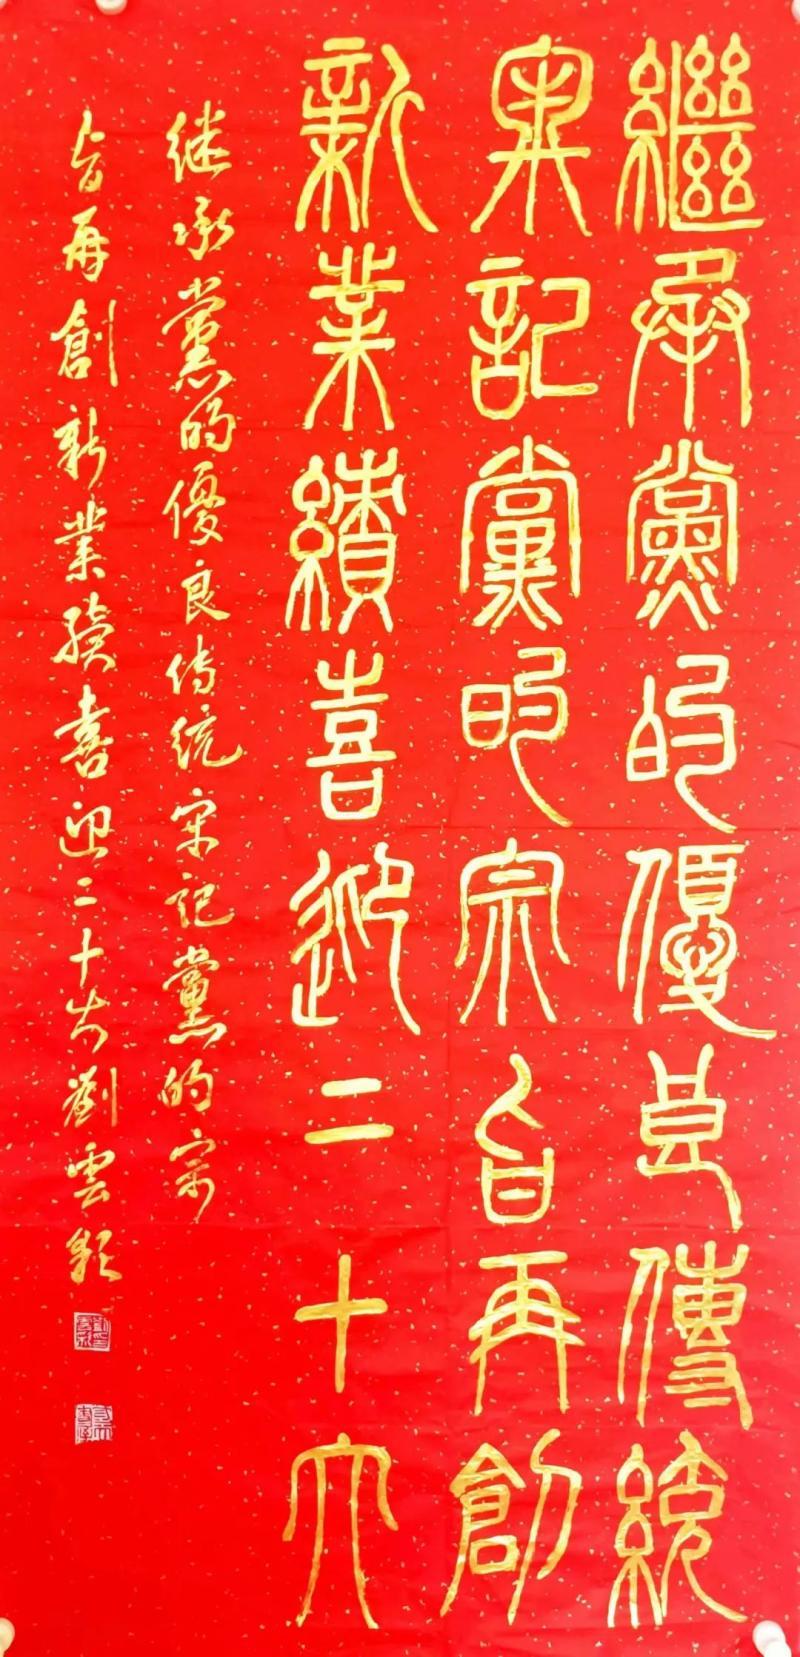 繼承黨的優良傳統
牢記黨的宗旨再創
新業績喜迎二十大
继承黨的優良傳统牢记黨的宗
旨再創新業績喜迎二十大劉雲